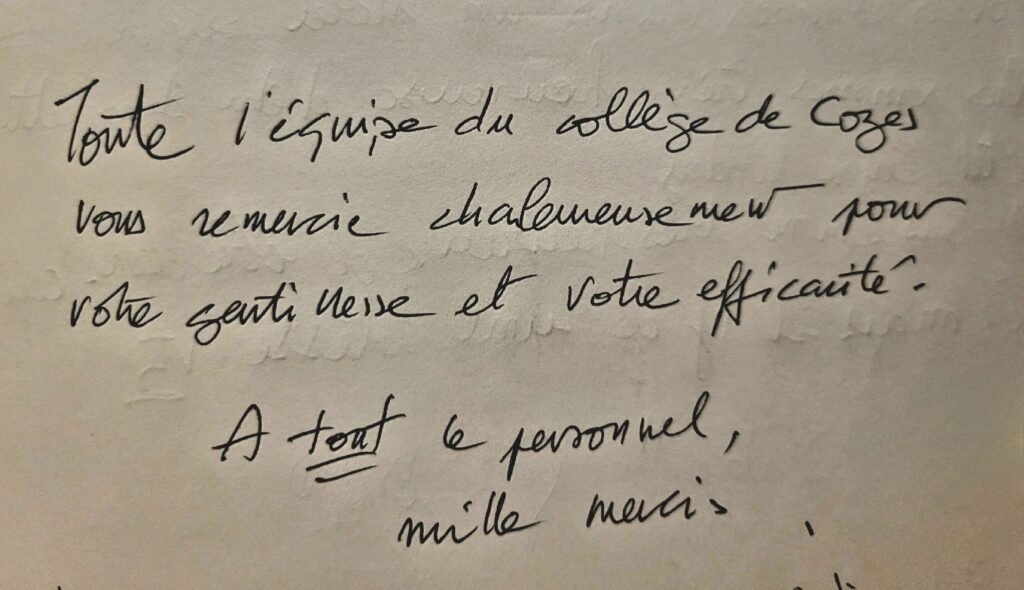 Toute l'équipe du collège de Cozes
vous remercie chaleureusement pour
votre gentillesse et votre efficacité.
A tout le personnel,
mille mercis